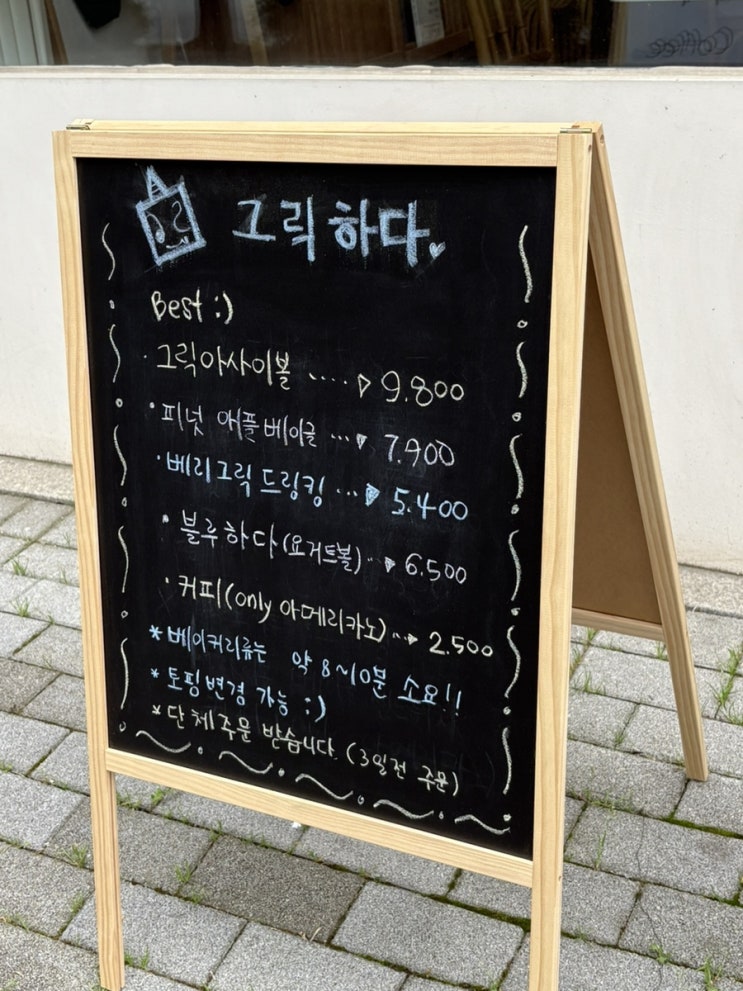 그릭하다
Best :)
· 그릭아사이볼 ····▷ 9.800
· 피넛 애플 베이글 ···▶ 7.900
· 베리그릭 드링킹 ···▶ 5.400
· 블루하다(요거트볼)··▶ 6.500
· 커피(only 아메리카노)··▶ 2.500
* 베이커리류는 약 8~10분 소요!!
* 토핑변경 가능 :)
* 단체주문 받습니다. (3일전 주문)